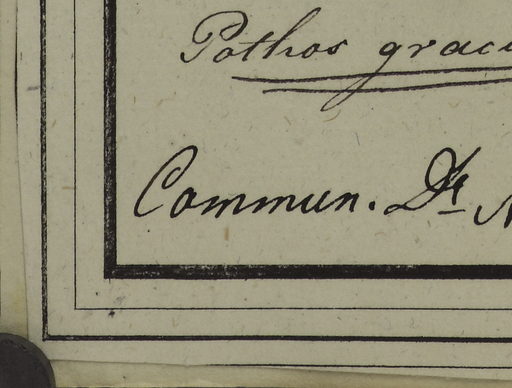 Pothos graci
Commun. Dr.